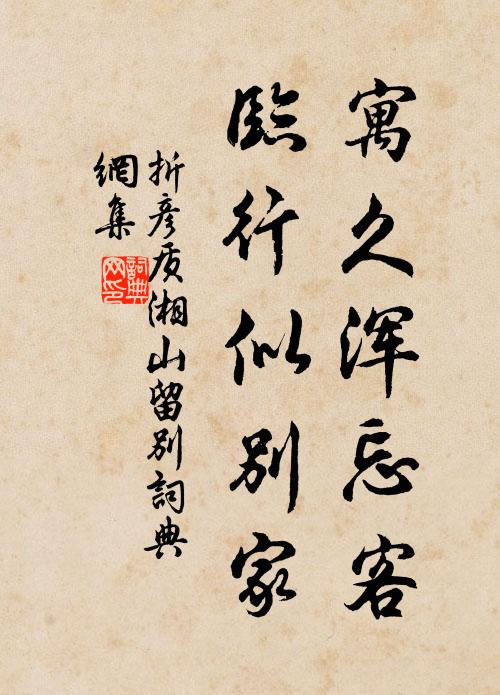 寓久浑忘客
臨行似别家
折彦质湘山留别詞典
網集
詞典
网印